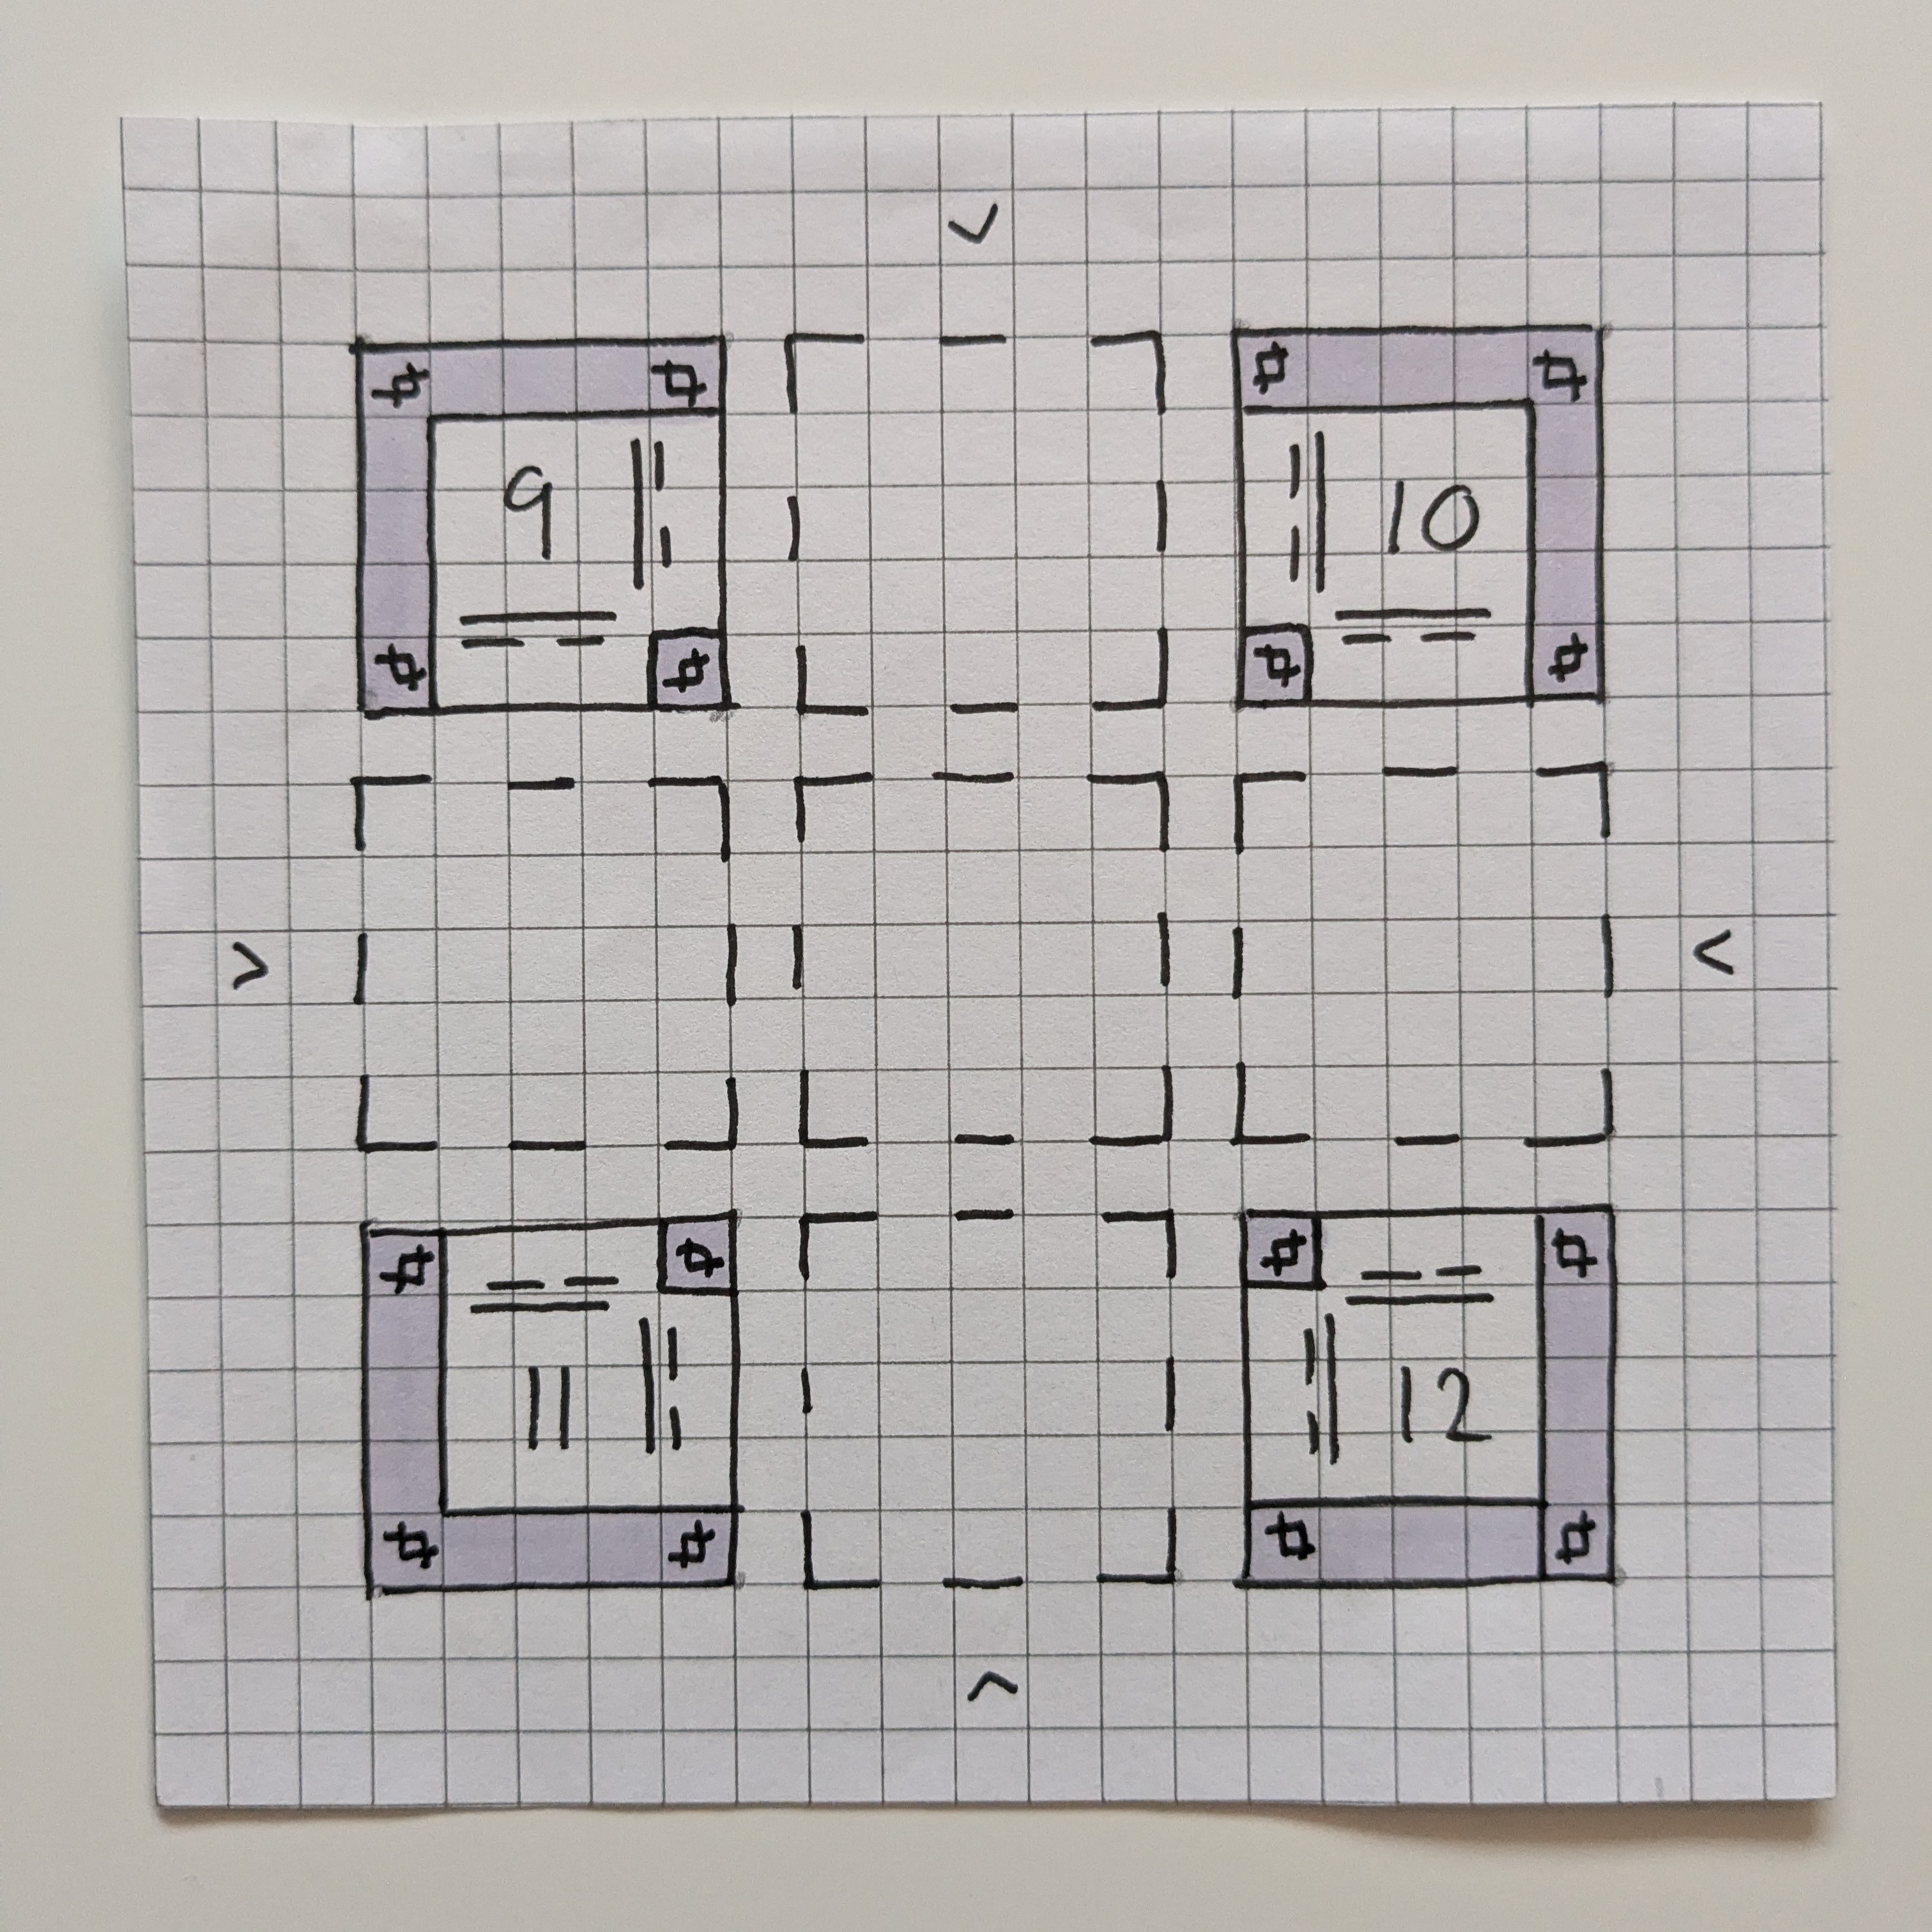 9 10
11 12